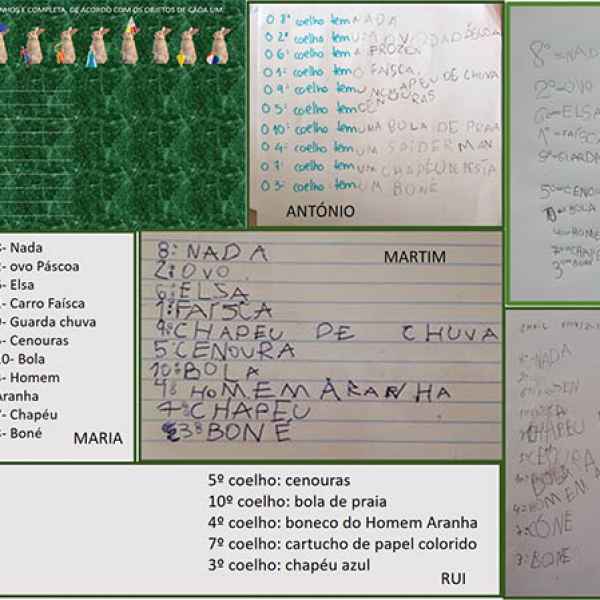 NHOS E COMPLETA, DE ACORDO COM OS OBJETOS DE CADA UM.
O 8º coelho tem NADA
O 2º coelho tem
O 6º coelho tem A FROZEN
O 1º coelho tem O FAÍSCA.
O 9º coelho tem UN CHAPEU DE CHUVA
O 5º coelho tem CENOURAS
O 10º coelho tem UMA BOLA DE PRAIA
O 4º coelho tem UM SAIDERMAN
O 7º coelho tem UM CHAPÉU DE FESTA
O 3º coelho tem UM BONÉ
ANTÓNIO
8º=NAD
2º=OVO
ELSA
5º=CENOU
BOLA
HOME
- Nada
- ovo Páscoa
- Elsa
- Carro Faísca
- Guarda chuva
- Cenouras
10- Bola
- Homem
Aranha
- Chapéu
- Boné
MARIA
MARTIM
8º NADA
2º OVO
6º ELSA
1º FAÍSCA
9º CHAPEU DE CHUVA
5º CENOURA
10º BOLA
4º HOMEM ARANHA
7º CHAPEU
3º BONÉ
NADA
CHAPEU
BOLA
HOMEN
CONE
3º BONE
5º coelho: cenouras
10º coelho: bola de praia
4º coelho: boneco do Homem Aranha
7º coelho: cartucho de papel colorido
3º coelho: chapéu azul
RUI